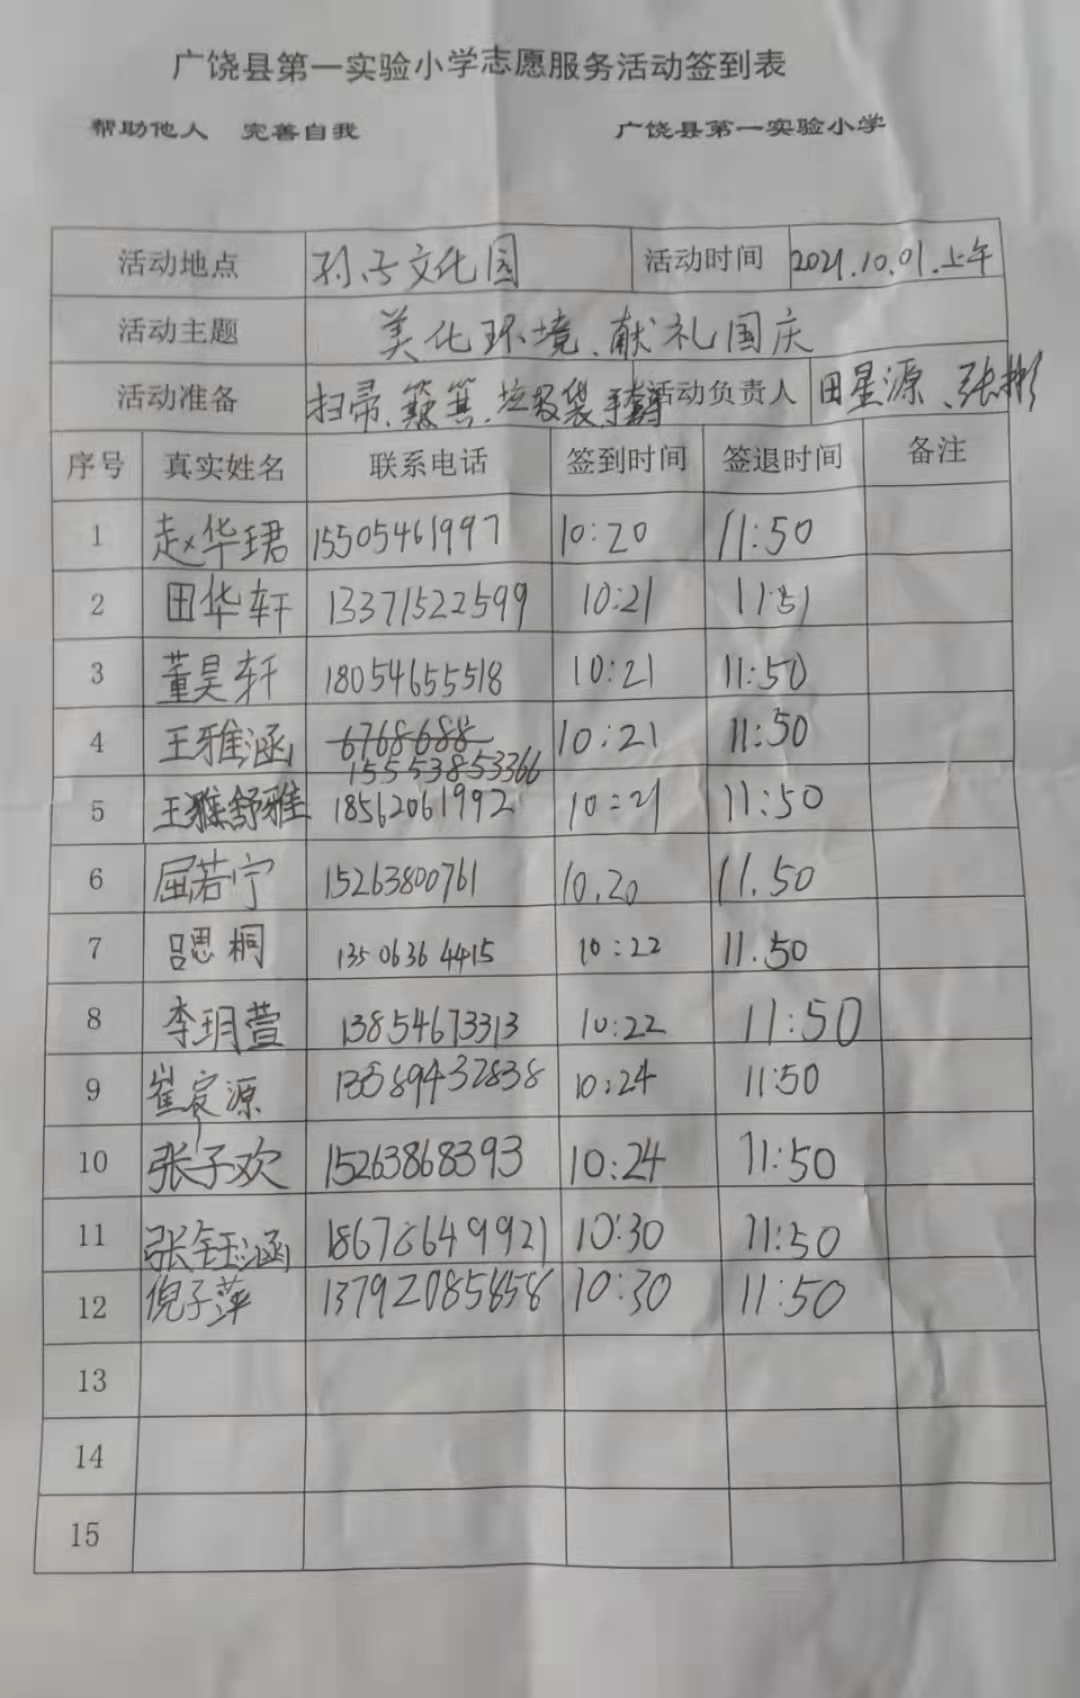 广饶县第一实验小学志愿服务活动签到表
帮助他人 完善自我 广饶县第一实验小学
活动地点 孙子文化园 活动时间 2021.10.01.上午
活动主题 美化环境、献礼国庆
活动准备 扫帚、簸箕、垃圾袋、手套 活动负责人 田星源、张彬
序号 真实姓名 联系电话 签到时间 签退时间 备注
1 赵华珺 15505461997 10:20 11:50
2 田华轩 13371522599 10:21 11:51
3 董昊轩 18054655518 10:21 11:50
4 王雅涵 6768688 10:21 11:50
15553853366
5 王雅舒雅 18562061992 10:21 11:50
6 屈若宁 15263800761 10.20 11.50
7 吕思桐 13506364415 10:22 11.50
8 李玥萱 13854673313 10:22 11:50
9 崔宸源 13589432838 10:24 11:50
10 张子欢 15263868393 10:24 11:50
11 张钰涵 18678649921 10:30 11:50
12 倪子萍 13792085858 10:30 11:50
13
14
15